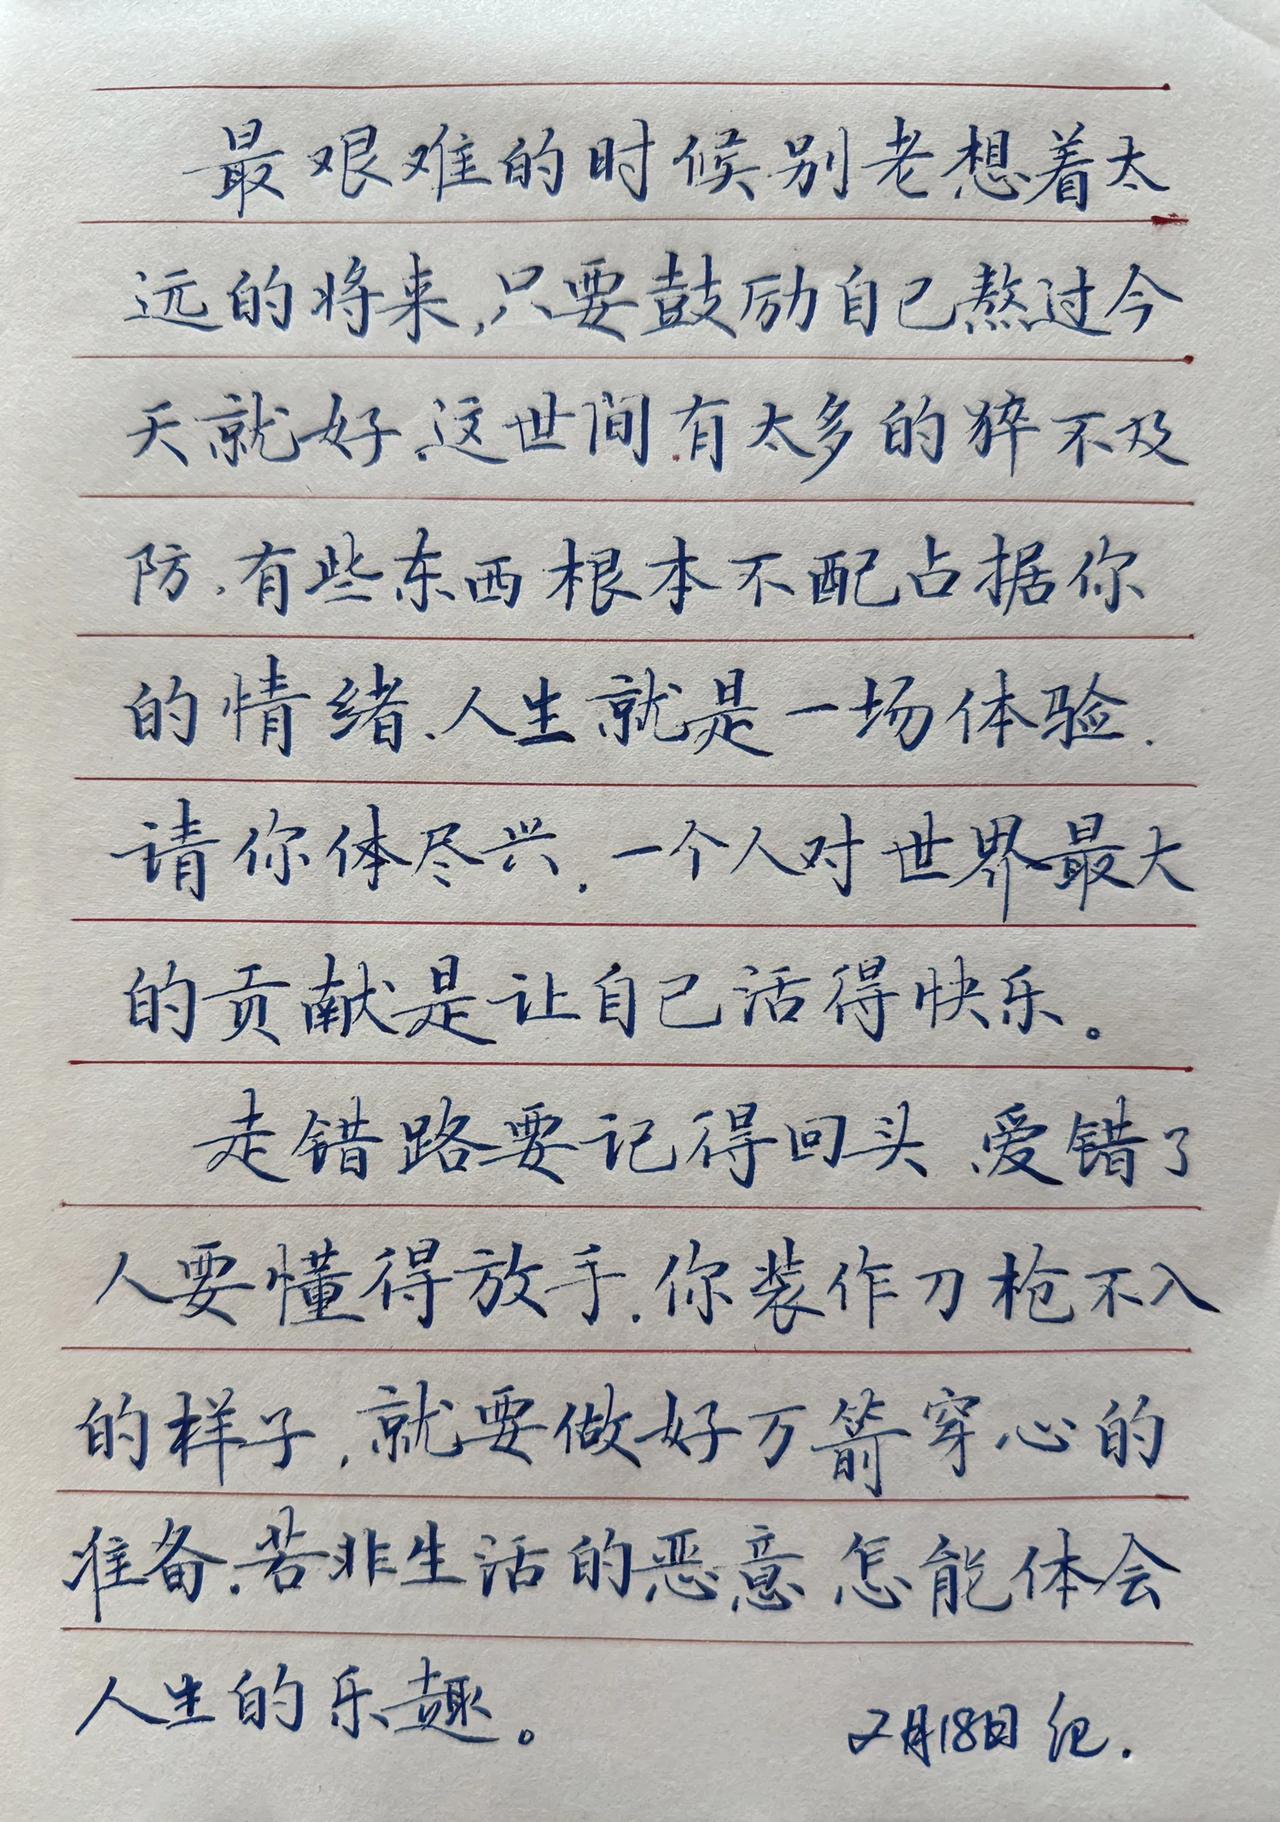 最艰难的时候别老想着太
远的将来,只要鼓励自己熬过今
天就好.这世间有太多的猝不及
防.有些东西根本不配占据你
的情绪.人生就是一场体验.
请你体尽兴.一个人对世界最大
的贡献是让自己活得快乐。
走错路要记得回头、爱错了
人要懂得放手.你装作刀枪不入
的样子,就要做好万箭穿心的
准备.若非生活的恶意怎能体会
人生的乐趣。
2月18日 纪.